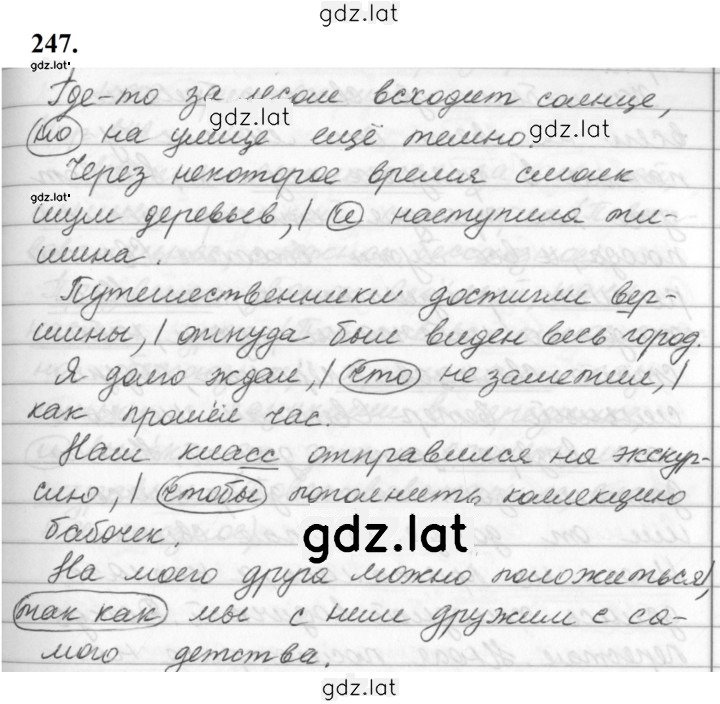 gdz.lat
247.
gdz.lat
Где-то за лесом всходит солнце,
gdz.lat
gdz.lat
но на улице ещё темно.
Через некоторое время смолк
gdz.lat
шум деревьев, | и наступила ти-
шина.
Путешественники достигли вер-
шины, | откуда был виден весь город.
Я долго ждал, | что не заметил, |
как прошёл час.
Наш класс отправился на экскур-
сию, | чтобы пополнить коллекцию
бабочек.
gdz.lat
На моего друга можно положиться|,
так как мы с ним дружим с са-
мого детства.
gdz.lat